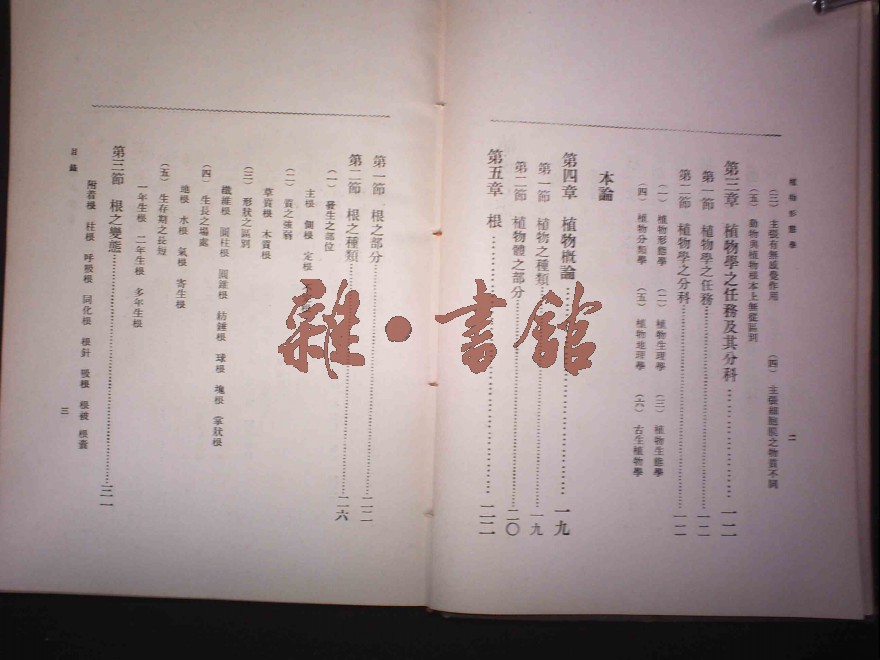 植物形態學
二
(三) 主張有無感覺作用 (四) 主張細胞膜之物質不同
(五) 動物與植物根本上無從區別
第三章 植物學之任務及其分科…………一二
第一節 植物學之任務…………一二
第二節 植物學之分科…………一二
(一) 植物形態學 (二) 植物生理學 (三) 植物生態學
(四) 植物分類學 (五) 植物地理學 (六) 古生植物學
本論
第四章 植物概論…………一九
第一節 植物之種類…………一九
第二節 植物體之部分…………二〇
第五章 根…………二二
第一節 根之部分…………二二
第二節 根之種類…………二六
(一) 發生之部位
主根 側根 定根
(二) 質之強弱
草質根 木質根
(三) 形狀之區別
纖維根 圓柱根 圓錐根 紡錘根 球根 塊根 掌狀根
(四) 生長之場處
地根 水根 氣根 寄生根
(五) 生存期之長短
一年生根 二年生根 多年生根
第三節 根之變態…………三一
附着根 柱根 呼吸根 同化根 根針 吸根 根被 根囊
目錄
三
雜·書館